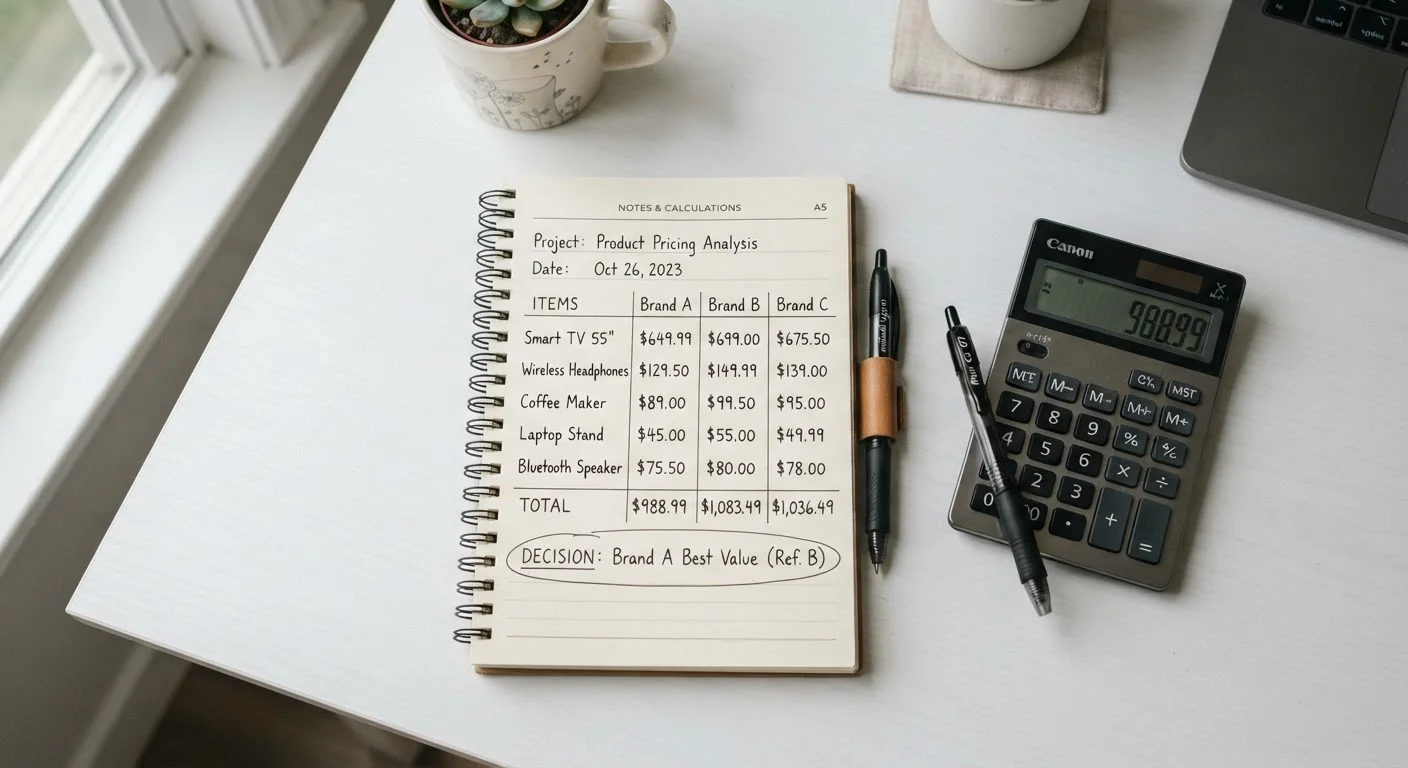 NOTES & CALCULATIONS A5
Project: Product Pricing Analysis
Date: Oct 26, 2023
ITEMS Brand A Brand B Brand C
Smart TV 55" $649.99 $699.00 $675.50
Wireless Headphones $129.50 $149.99 $139.00
Coffee Maker $89.00 $99.50 $95.00
Laptop Stand $45.00 $55.00 $49.99
Bluetooth Speaker $75.50 $80.00 $78.00
TOTAL $988.99 $1,083.49 $1,036.49
DECISION: Brand A Best Value (Ref. B)
Canon
988.99
MST
7 8 9 %
4 5 6 × ÷
2 3 +
0 • =